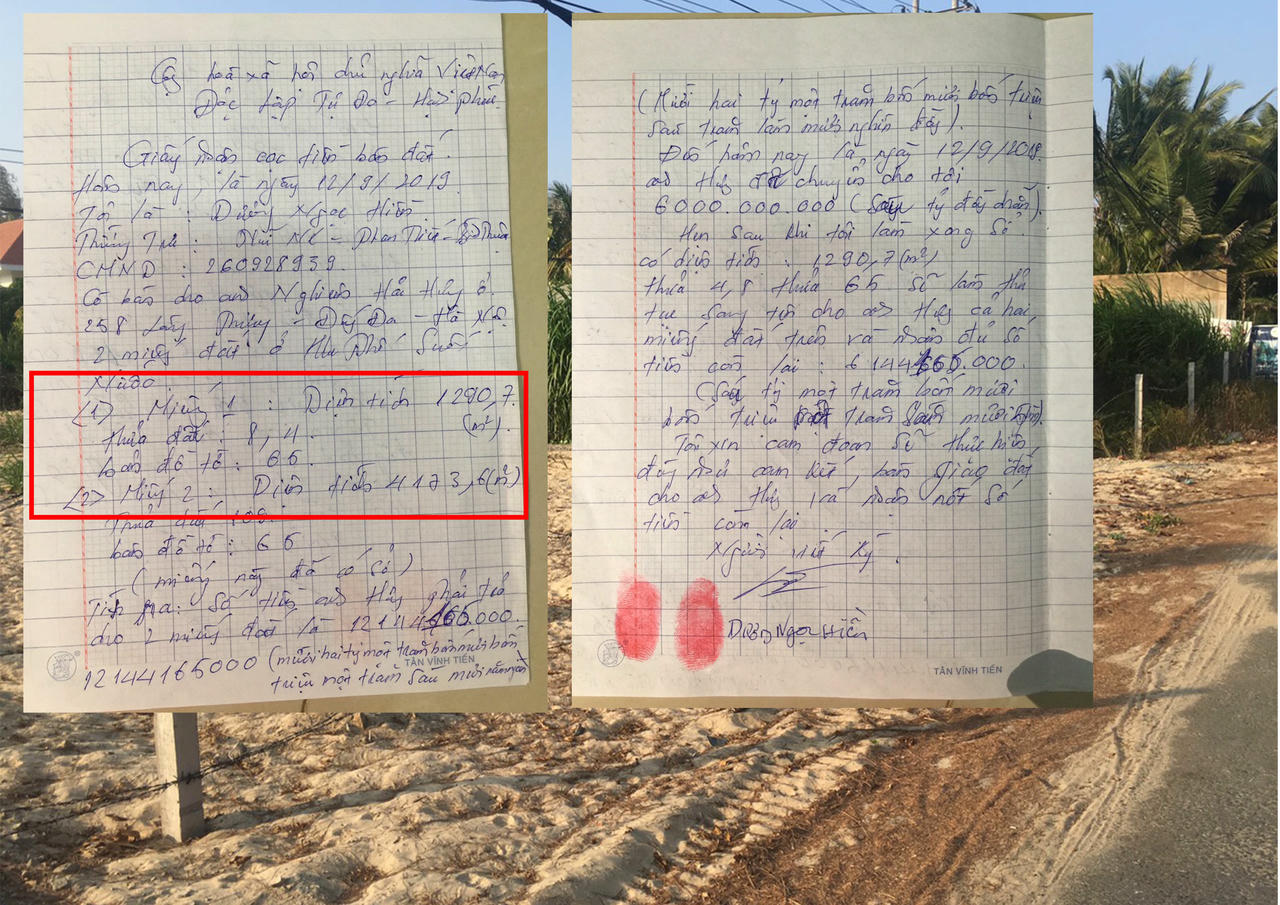 Cộng hoà xã hội chủ nghĩa Việt Nam
Độc lập Tự Do - Hạnh phúc
Giấy nhận cọc tiền bán đất.
Hôm nay, là ngày 12/9/2019.
Tôi là: Dương Ngọc Hiền
Thường Trú: Mũi Né - Phan Thiết - Bình Thuận
CMND: 260928939.
Có bán cho anh Nghiêm Hải Hưng ở
258 Láng - Đống Đa - Hà Nội
2 miếng đất ở Khu Phố Suối
Nước.
(1) Miếng 1: Diện tích 1290,7
(m²).
thửa đất: 8, 4.
bản đồ tờ: 66.
(2) Miếng 2: Diện tích 4173,6(m²)
Thửa đất 108.
bản đồ tờ: 66
(miếng này đã có sổ)
Tính ra: Số tiền anh Hưng phải trả
cho 2 miếng đất là 12144165.000.
12144165000 (mười hai tỷ một trăm bốn mươi bốn
triệu một trăm sáu mươi năm nghìn
TÂN VĨNH TIẾN
(Mười hai tỷ một trăm bốn mươi bốn triệu
sáu trăm lăm mươi nghìn đồng).
Đến hôm nay là ngày 12/9/2019.
anh Hưng đã chuyển cho tôi
6000.000.000 (Sáu tỷ đồng chẵn).
Hẹn sau khi tôi làm xong sổ.
có diện tích: 1290,7(m²)
thửa 4,8 thửa 65 sẽ làm thủ
tục sang tên cho anh Hưng cả hai
miếng đất trên và nhận đủ số
tiền còn lại: 6144165.000.
(Sáu tỷ một trăm bốn mươi
bốn triệu trăm mươi
Tôi xin cam đoan sẽ thực hiện
đúng như cam kết, bàn giao đất
cho anh Hưng và nhận nốt số
tiền còn lại
Người viết Ký.
Dương Ngọc Hiền
TÂN VĨNH TIẾN